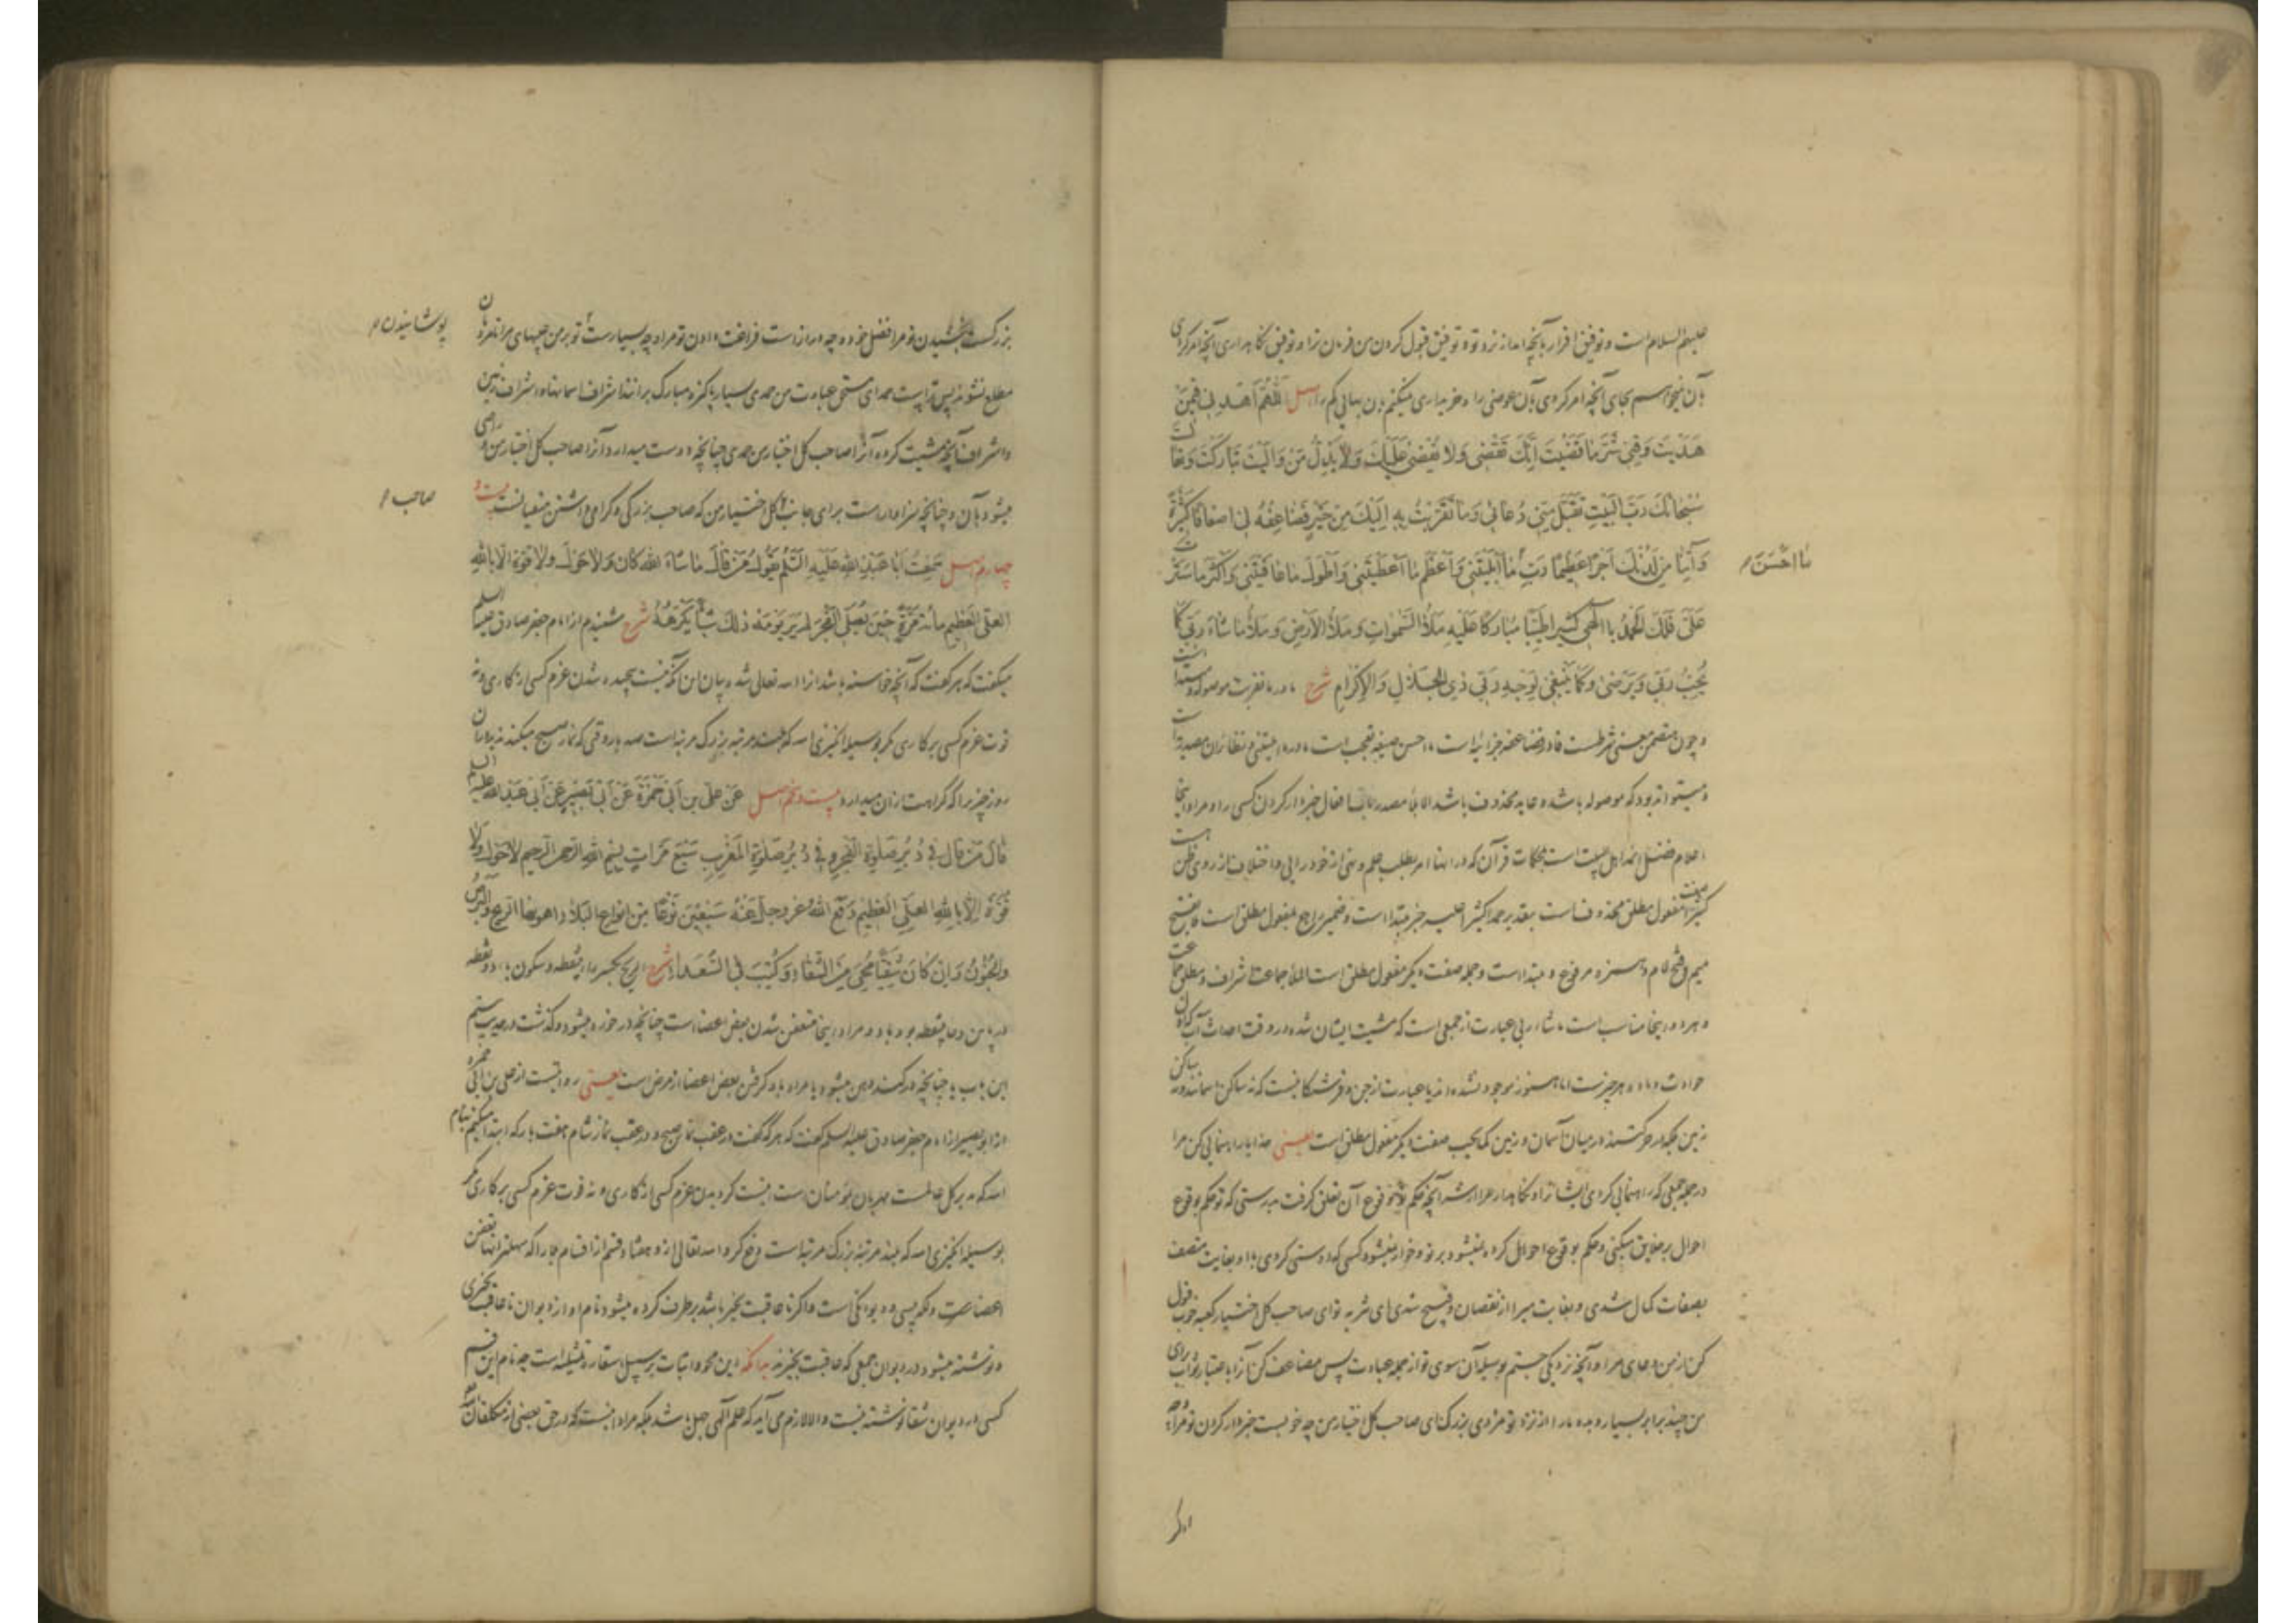 علیهم السلام است و توفیق اقرار بآنچه آمد از نزد تو و توفیق قبول کردن من فرمان ترا و توفیق نگاهداری آنچه امر کردی
بآن نمیخواهم بجای آنچه امر کردی بآن عوضی را و خریداری نمیکنم بآن بهائی کم را اصل اَللّهُمَّ اهْدِنی فیمَنْ
هَدَیْتَ وَقِنی شَرَّ ما قَضَیْتَ اِنَّکَ تَقْضی وَلا یُقْضی عَلَیْکَ وَلا یَذِلُّ مَنْ والَیْتَ تَبارَکْتَ وَتَعالَیْتَ
سُبْحانَکَ رَبَّ الْبَیْتِ تَقَبَّلْ مِنّی دُعائی وَما تَقَرَّبْتُ بِهِ اِلَیْکَ مِنْ خَیْرٍ فَضاعِفْهُ لی اَضْعافًا کَثیرَةً
وَآتِنا مِنْ لَدُنْکَ اَجْرًا عَظیمًا رَبِّ ما اَبْلَیْتَنی وَاَعْظَمَ ما اَعْطَیْتَنی وَاَطْوَلَ ما عافَیْتَنی وَاَکْثَرَ ما سَتَرْتَ
ما اَحْسَنَ
عَلَیَّ فَلَکَ الْحَمْدُ یا اِلهی کَثیرًا طَیِّبًا مُبارَکًا عَلَیْهِ مَلَأُ السَّمواتِ وَمَلَأُ الْاَرْضِ وَمَلَأُ ما شاءَ رَبّی کَما
یُحِبُّ رَبّی وَیَرْضی وَکَما یَنْبَغی لِوَجْهِ رَبّی ذِی الْجَلالِ وَالْاِکْرامِ شرح ما در ما تقربت موصوله و مبتداست
و چون متضمن معنی شرطست فا در فضاعفه جزائیه است ما احسن صیغه تعجب است ما در ما ابلیتنی و نظائر آن مصدریه است
و میتواند بود که موصوله باشد و عاید محذوف باشد الابلاء مصدر باب افعال خبردار کردن کسی را و مراد اینجا
اعلام فضل ائمه اهل بیت است بمحکمات قرآن که در آنها امر بطلب علم و نهی از خودرایی و اختلاف از روی ظن است
کثیرا صفت مفعول مطلق محذوفست بتقدیر حمدا کثیرا علیه خبر مبتداست و ضمیر راجع بمفعول مطلق است ملأ بفتح
میم و فتح لام و همزه مرفوع و مبتداست و جمله صفت دیگر مفعول مطلق است الملأ جماعت اشراف و مطلق جماعت
و هر دو اینجا مناسب است ما شاء ربی عبارت از جمعی است که مشیت ایشان شده در وقت احداث آب که آن
حوادث و ماده هر چیزست اما هنوز موجود نشده اند یا عبارت از جن و فرشتگانیست که نه ساکن آسمانند و نه ساکن
زمین بلکه در حرکتند در میان آسمان و زمین کما یحب صفت دیگر مفعول مطلق است یعنی خدایا راهنمائی کن مرا
در جمله جمعی که راهنمائی کردی ایشانرا و نگاهدار مرا از شر آنچه حکم تو بوقوع آن تعلق گرفت بدرستی که تو حکم بوقوع
احوال برخلایق میکنی و حکم بوقوع احوال کرده نمیشود بر تو و خوار نمیشود کسی که دوستی کردی با او بغایت متصف
بصفات کمال شدی و بغایت مبرا از نقصان و قبیح شدی ای تنزیه تو ای صاحب کل اختیار کعبه خوب قبول
کن از من دعای مرا و آنچه نزدیکی جستم بوسیله آن سوی تو از جمله عبادت پس مضاعف کن آنرا باعتبار ثواب برای
من چند برابر بسیار و بده ما را از نزد تو مزدی بزرگ ای صاحب کل اختیار من چه خوبست خبردار کردن تو مرا و چه
بزرگست بخشیدن تو مرا فضل خود و چه درازست فراغت دادن تو مرا و چه بسیارست پوشانیدن تو بر من عیبهای مرا تا مردمان
پوشانیدن
مطلع نشوند پس تراست حمد ای مستحق عبادت من حمدی بسیار پاکیزه مبارک برآنند اشراف آسمانها و اشراف زمین
و اشراف آنچه مشیت کرده آنرا صاحب کل اختیار من حمدی چنانچه دوست میدارد آنرا صاحب کل اختیار من و راضی
میشود بآن و چنانچه سزاوارست برای جانب صاحب کل اختیار من که صاحب بزرگی و گرامی داشتن متقیانست بیست و
صاحب
چهارم اصل سَمِعْتُ اَبا عَبْدِ اللهِ عَلَیْهِ السَّلامُ یَقُولُ مَنْ قالَ ما شاءَ اللهُ کانَ وَلا حَوْلَ وَلا قُوَّةَ اِلّا بِاللهِ
الْعَلِیِّ الْعَظیمِ مِائَةَ مَرَّةٍ حینَ یُصَلِّی الْفَجْرَ لَمْ یَرَ یَوْمَهُ ذلِکَ شَیْئًا یَکْرَهُهُ شرح شنیدم از امام جعفر صادق علیه السلام
میگفت که هر که گفت که آنچه خواسته باشد آنرا الله تعالی شد و بیان این آنکه نیست پیچیده شدن عزم کسی از کاری و نه
قوت عزم کسی بر کاری مگر بوسیله انگیزی الله که بلند مرتبه بزرگ مرتبه است صد بار وقتی که نماز صبح میکند ندید در آن
روز چیزیرا که کراهت از آن میدارد بیست و پنجم اصل عَنْ عَلِیِّ بْنِ اَبی حَمْزَةَ عَنْ اَبی بَصیرٍ عَنْ اَبی عَبْدِ اللهِ علیه السلام
قالَ مَنْ قالَ فی دُبُرِ صَلوةِ الْفَجْرِ وَفی دُبُرِ صَلوةِ الْمَغْرِبِ سَبْعَ مَرّاتٍ بِسْمِ اللهِ الرَّحْمنِ الرَّحیمِ لا حَوْلَ وَلا
قُوَّةَ اِلّا بِاللهِ الْعَلِیِّ الْعَظیمِ دَفَعَ اللهُ عز وجل عَنْهُ سَبْعینَ نَوْعًا مِنْ اَنْواعِ الْبَلاءِ اَهْوَنُهَا الرّیحُ وَالْبَرَصُ
وَالْجُنُونُ وَاِنْ کانَ شَقِیًّا مُحِیَ مِنَ الشَّقاءِ وَکُتِبَ فِی السُّعَداءِ شرح الریح بکسر راء بینقطه و سکون یاء دو نقطه
در پایین و حاء بینقطه بود باد و مراد اینجا متعفن شدن بعض اعضاست چنانچه در خوره میشود و گذشت در حدیث بیستم
این باب یا چنانچه در گنده دهن میشود یا مراد باد گرفتن بعض اعضا از مرض است یعنی روایتست از علی بن ابی حمزه
از ابو بصیر از امام جعفر صادق علیه السلام گفت که هر که گفت در عقب نماز صبح و در عقب نماز شام هفت بار که ابتدا میکنم بنام
الله که مدبر کل عالمست مهربان بمؤمنان است نیست گردیدن عزم کسی از کاری و نه قوت عزم کسی بر کاری مگر
بوسیله انگیزی الله که بلند مرتبه بزرگ مرتبه است دفع کرد الله تعالی ازو هفتاد قسم از اقسام بلا را که سهلتر آنها تعفن
اعضاست و دیگر پیسی و دیوانگی است و اگر ناعاقبت بخیر باشد برطرف کرده میشود نام او از دیوان ناعاقبت بخیری
و نوشته میشود در دیوان جمعی که عاقبت بخیرند بدانکه این محو و اثبات بر سبیل استعاره تمثیلیه است چه نام این قسم
کسی در دیوان شقا نوشته نیست و الا لازم می آید که علم الهی جهل باشد بلکه مراد اینست که در حق بعضی از مکلفان